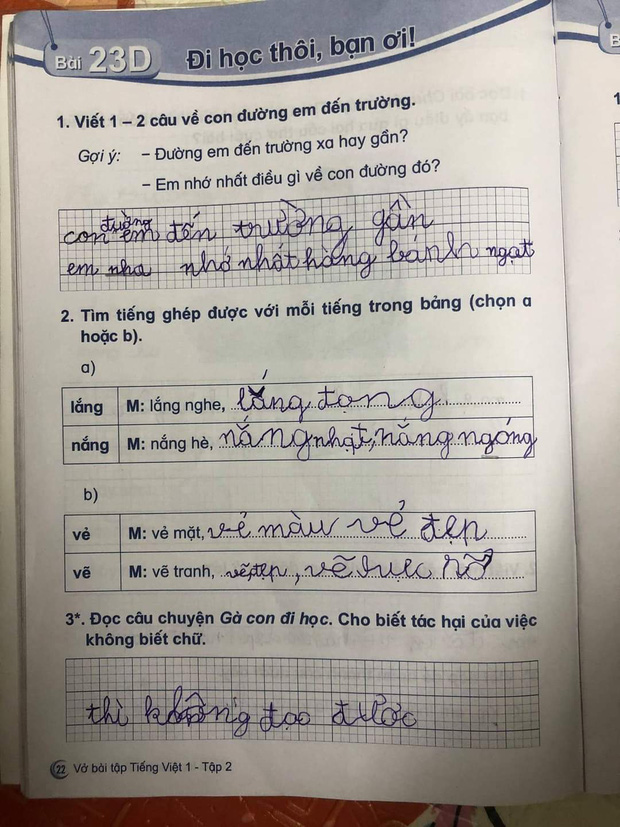 Bài 23D Đi học thôi, bạn ơi!
1. Viết 1 – 2 câu về con đường em đến trường.
Gợi ý: – Đường em đến trường xa hay gần?
– Em nhớ nhất điều gì về con đường đó?
đường
con em đến trường gần
em nha nhớ nhất hàng bánh ngạt
2. Tìm tiếng ghép được với mỗi tiếng trong bảng (chọn a
hoặc b).
a)
lắng M: lắng nghe, lắng đọng
nắng M: nắng hè, nắng nhạt, nắng ngóng
b)
vẻ M: vẻ mặt, vẻ màu vẻ đẹp
vẽ M: vẽ tranh, vẽ đẹp, vẽ rực rỡ
3*. Đọc câu chuyện Gà con đi học. Cho biết tác hại của việc
không biết chữ.
thì không đạo được
22 Vở bài tập Tiếng Việt 1 - Tập 2